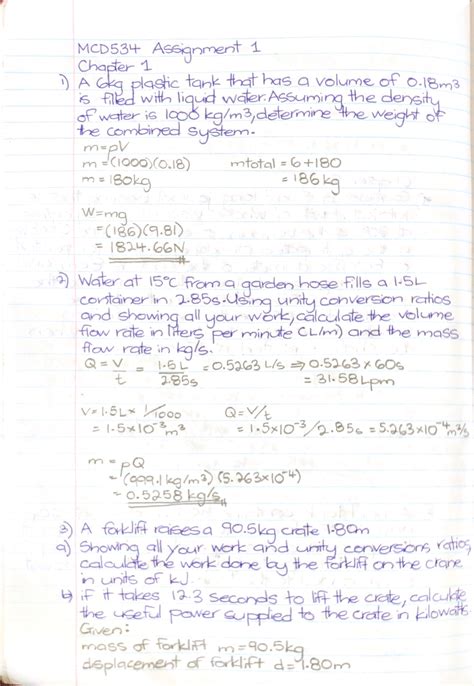 MCD534 Assignment 1
Chapter 1
1) A 6kg plastic tank that has a volume of 0.18m3
is filled with liquid water. Assuming the density
of water is 1000 kg/m3, determine the weight of
the combined system.
m=ρV
m = (1000)(0.18) mtotal = 6+180
m = 180kg = 186kg
W=mg
=(186)(9.81)
= 1824.66N
2) Water at 15°C from a garden hose fills a 1.5L
container in 2.85s. Using unity conversion ratios
and showing all your work, calculate the volume
flow rate in liters per minute (L/m) and the mass
flow rate in kg/s.
Q = V/t = 1.5L/2.85s = 0.5263 L/s ⇒ 0.5263 × 60s
= 31.58 Lpm
V= 1.5L × 1/1000 Q= V/t
= 1.5×10⁻³m³ = 1.5×10⁻³/2.85s = 5.263×10⁻⁴m³/s
m = ρQ
= (999.1 kg/m3)(5.263×10⁻⁴)
= 0.5258 kg/s
3) A forklift raises a 90.5kg crate 1.80m
a) Showing all your work and unity conversions ratios,
calculate the work done by the forklift on the crane
in units of kJ.
b) if it takes 12.3 seconds to lift the crate, calculate
the useful power supplied to the crate in kilowatts.
Given:
mass of forklift m=90.5kg
displacement of forklift d=1.80m